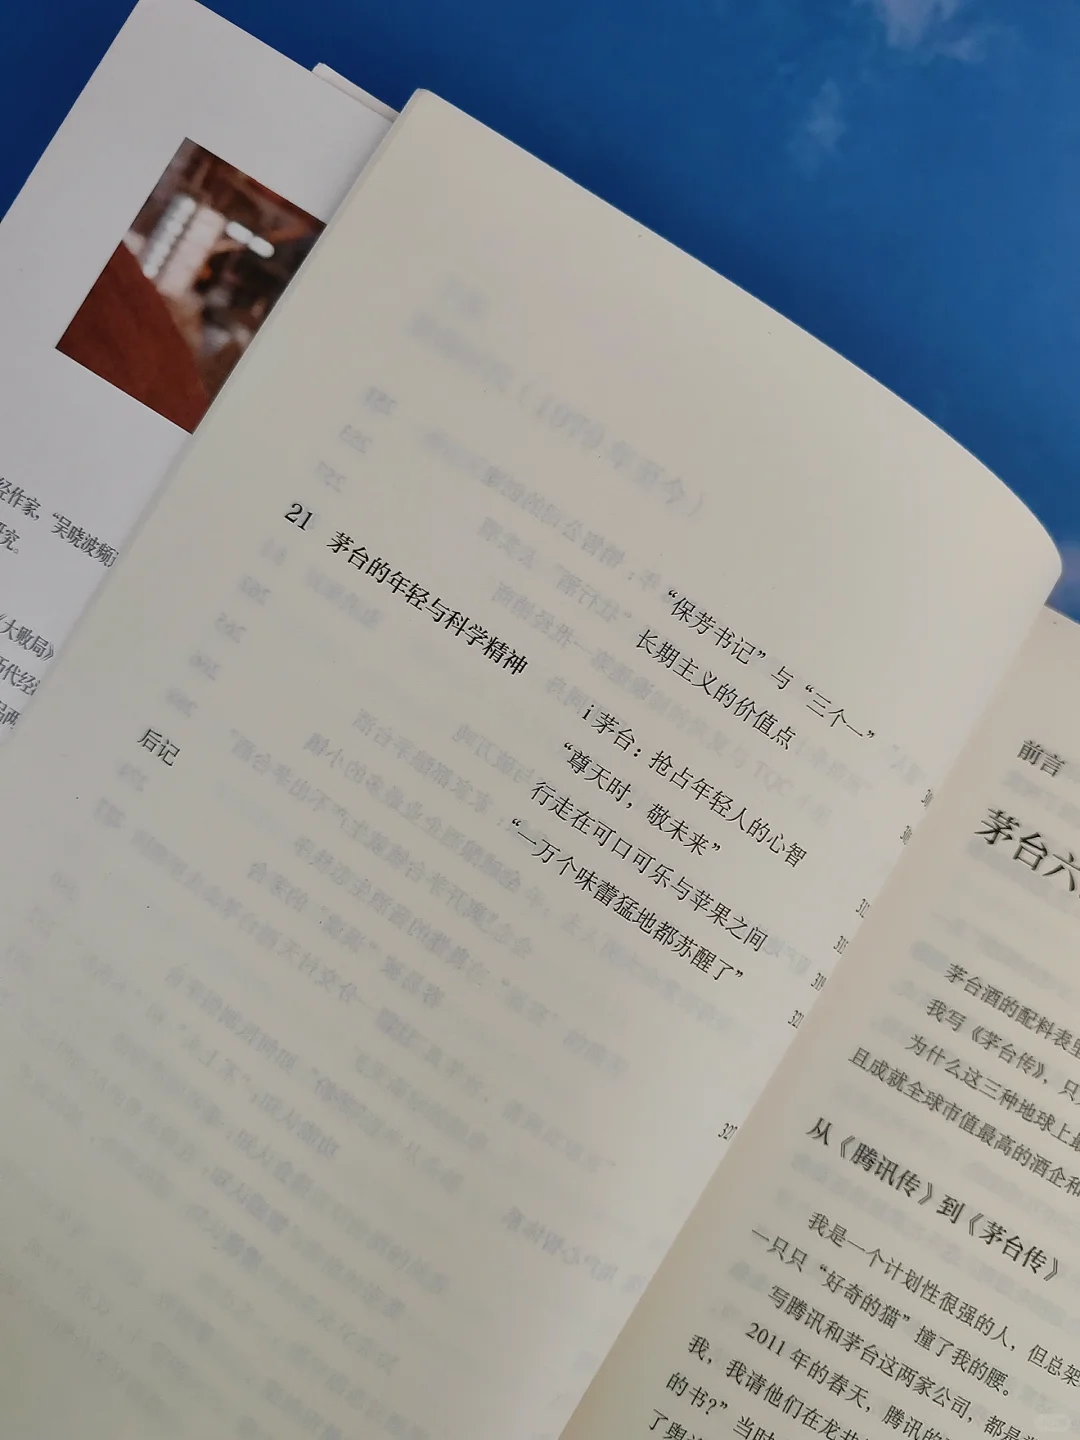 经作家，“吴晓波频道
研究。
《大败局》
历代经
“保芳书记”与“三个一”
长期主义的价值点
21 茅台的年轻与科学精神
i 茅台：抢占年轻人的心智 312
“尊天时，敬未来” 315
行走在可口可乐与苹果之间 319
“一万个味蕾猛地都苏醒了” 321
后记 327
前言
茅台六
茅台酒的配料表里
我写《茅台传》，只
为什么这三种地球上最
且成就全球市值最高的酒企和
从《腾讯传》到《茅台传》
我是一个计划性很强的人，但总架
一只只“好奇的猫”撞了我的腰。
写腾讯和茅台这两家公司，都是
2011 年的春天，腾讯的
我，我请他们在龙井
的书？”当时
了舆